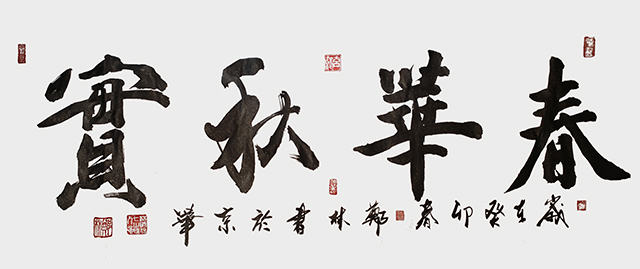 春華秋實
歲在癸卯春鄭林書於京華